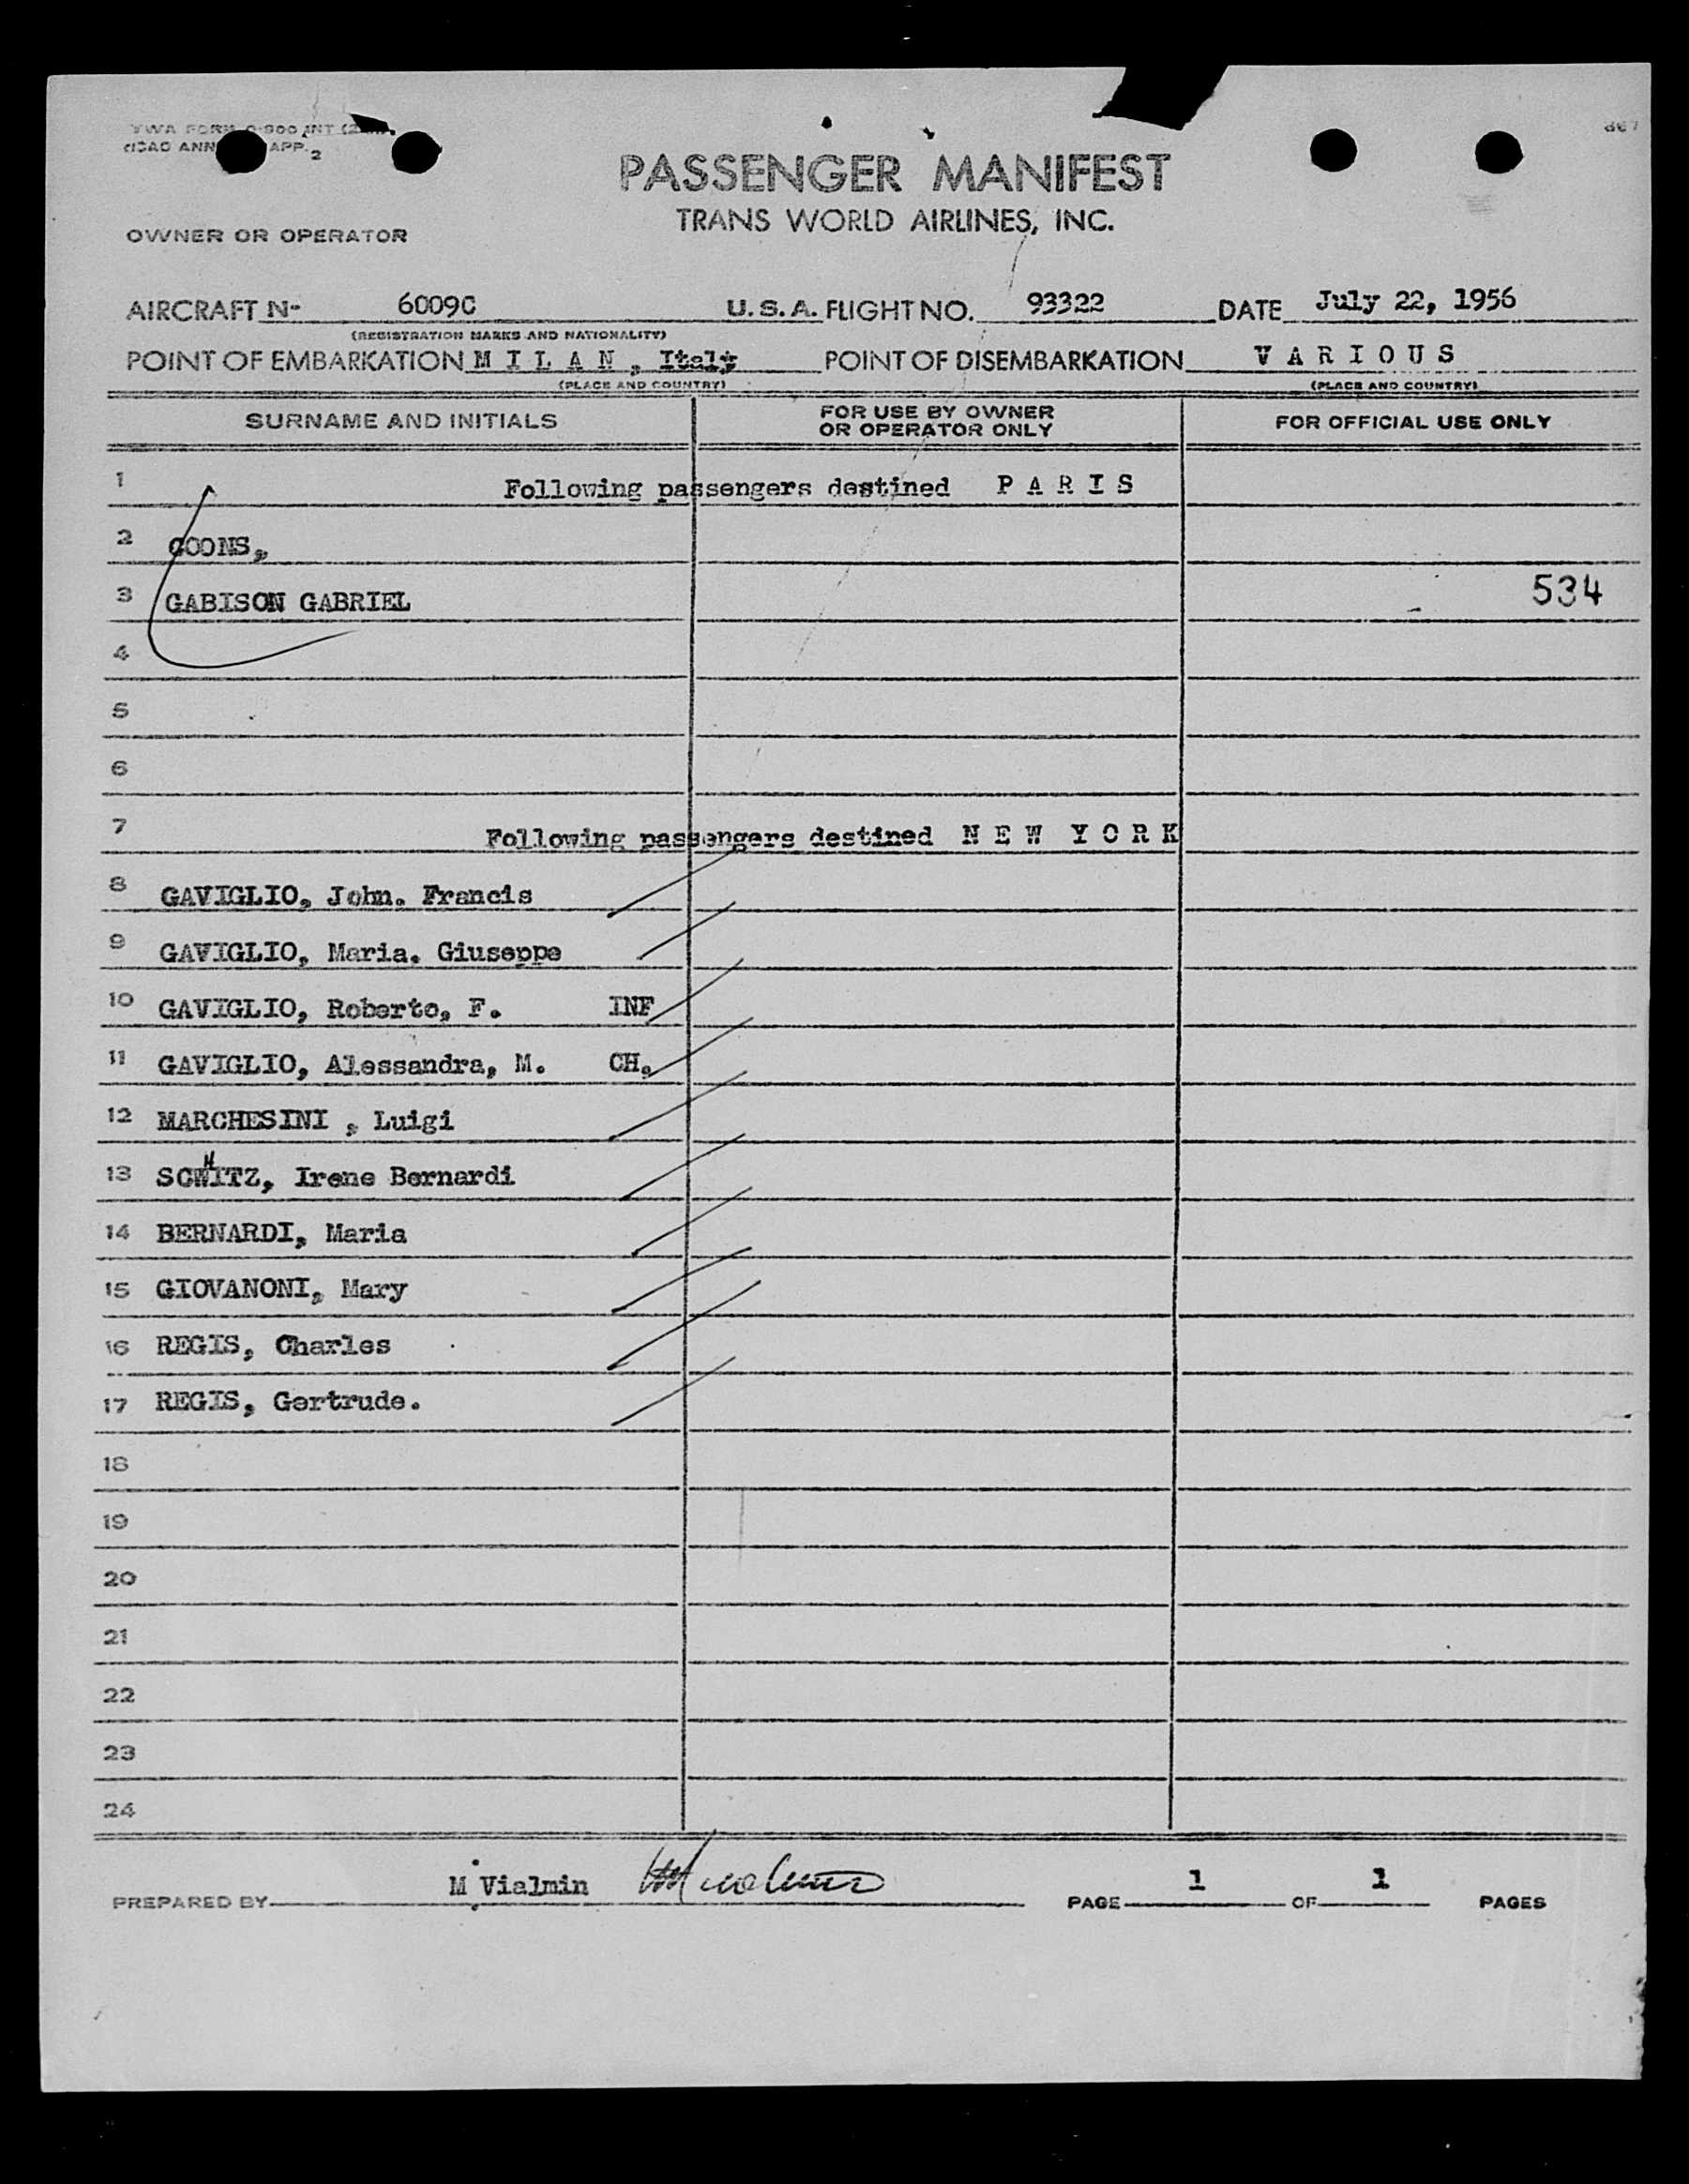 TWA FORM O-900 INT
(ICAO ANN APP. 2
867
PASSENGER MANIFEST
TRANS WORLD AIRLINES, INC.
OWNER OR OPERATOR
AIRCRAFT N- 6009C U.S.A. FLIGHT NO. 93322 DATE July 22, 1956
(REGISTRATION MARKS AND NATIONALITY)
POINT OF EMBARKATION M I L A N , Italy POINT OF DISEMBARKATION V A R I O U S
(PLACE AND COUNTRY) (PLACE AND COUNTRY)
SURNAME AND INITIALS FOR USE BY OWNER OR OPERATOR ONLY FOR OFFICIAL USE ONLY
1 Following passengers destined P A R I S
2 COONS,
3 GABISON GABRIEL 534
4
5
6
7 Following passengers destined N E W Y O R K
8 GAVIGLIO, John. Francis
9 GAVIGLIO, Maria. Giuseppe
10 GAVIGLIO, Roberto, F. INF
11 GAVIGLIO, Alessandra, M. CH.
12 MARCHESINI , Luigi
13 SCHITZ, Irene Bernardi
14 BERNARDI, Maria
15 GIOVANONI, Mary
16 REGIS, Charles
17 REGIS, Gertrude.
18
19
20
21
22
23
24
PREPARED BY M Vialmin PAGE 1 OF 1 PAGES